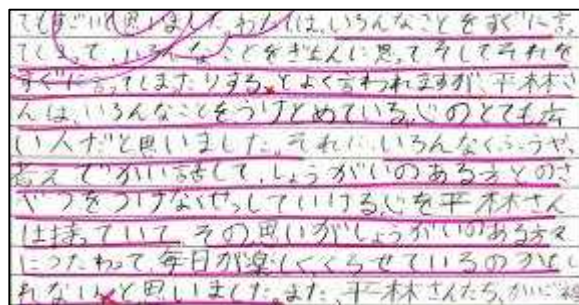 てもすごいと思いました。わたしは、いろんなことをすぐに言っ
てしまって、いろんなことをぎもんに思ってそしてそれを
すぐに言ってしまたりする。とよく言われますが、平林さ
んは、いろんなことをうけとめている心のとても広
い人だと思いました。それに、いろんなくふうや、
考えでかい話して、しょうがいのある方との
をつけなせっしていける心を平林さん
は持っていて、その思いがしょうがいのある方々
につたわって、毎日が楽しくくらせているのかもし
れないと思いました。また、平林さんたち、かいご